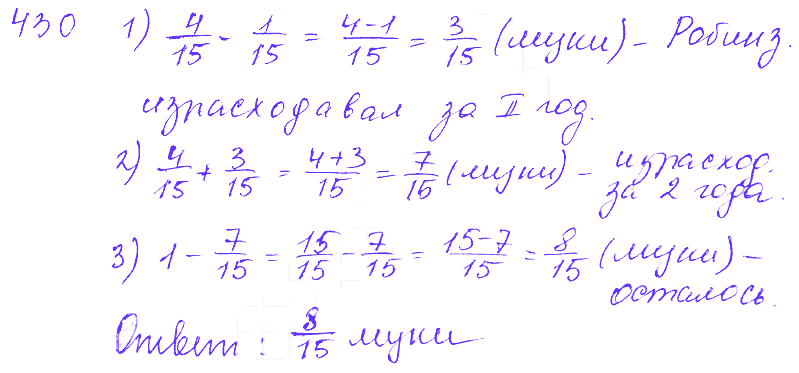 430 1) 4/15 - 1/15 = 4-1/15 = 3/15 (муки) - Робинз.
израсходавал за II год.
2) 4/15 + 3/15 = 4+3/15 = 7/15 (муки) - израсход.
за 2 года.
3) 1 - 7/15 = 15/15 - 7/15 = 15-7/15 = 8/15 (муки) -
осталось.
Ответ: 8/15 муки